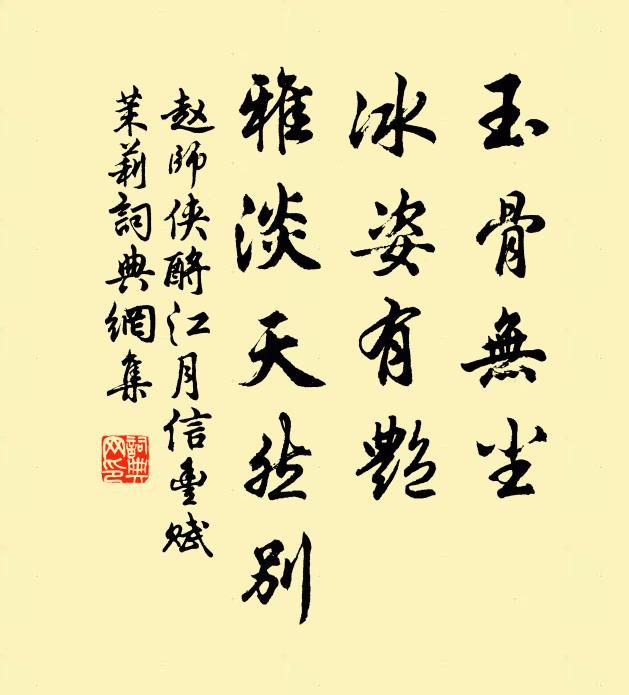 玉骨無塵
冰姿有艷
雅淡天然別
赵師侠酹江月信豐賦
茉莉詞典網集
詞典网印